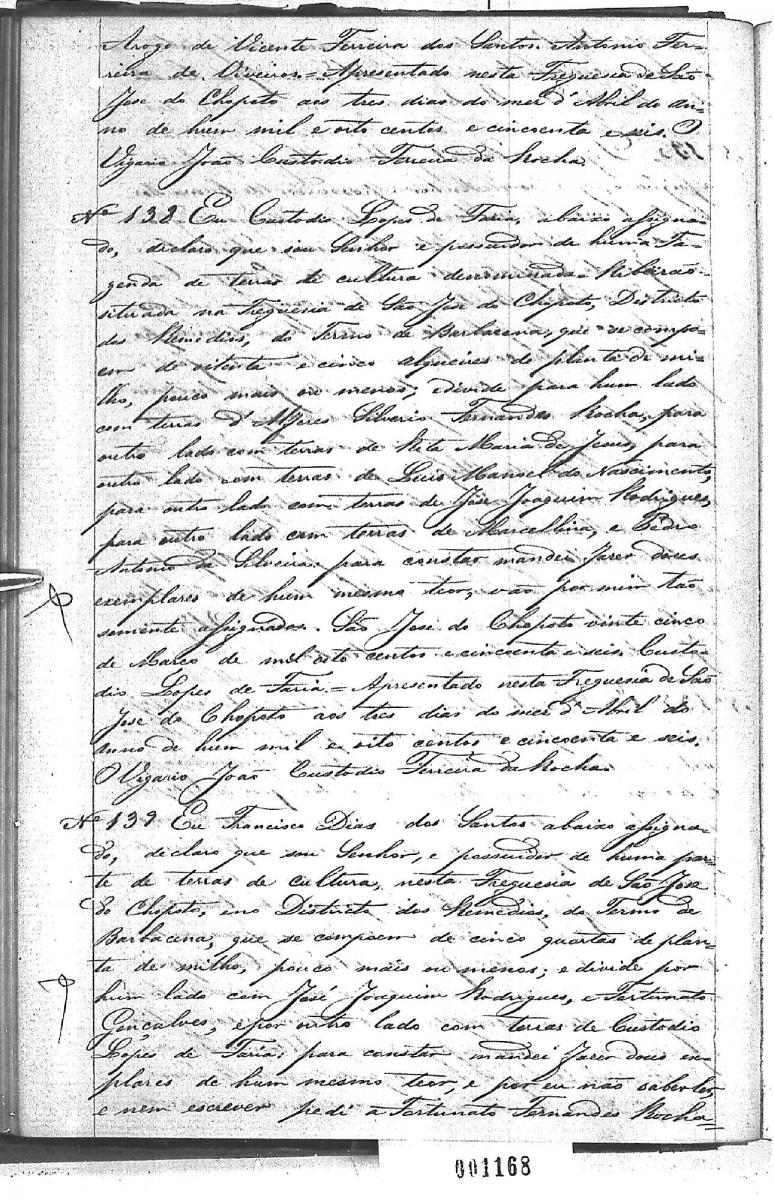 Arogo de Vicente Ferreira dos Santos. Antonio Fer-
reira de Viveiros = Apresentado nesta Freguesia de São
Jose do Chopoto aos tres dias do mez d'Abril do an-
no de hum mil e oito centos e cincoenta e seis. O
Vigario João Custodio Ferreira da Rocha
Nº 138 Eu Custodio Lopes de Faria, abaixo assigna-
do, declaro que sou Senhor e possuidor de huma Fa-
zenda de terras de cultura denominada Ribeirão
situada na Freguesia de São Jose do Chopoto, Districto
dos Remedios, do Termo de Barbacena, que se compo-
em de oitenta e cinco alqueires de planta de mi-
lho, pouco mais ou menos; e divide para hum lado
com terras d'Alferes Silverio Fernandes Rocha, para
outro lado com terras de Rita Maria de Jesus, para
outro lado com terras de Luis Manoel do Nascimento,
para outro lado com terras de Jose Joaquim Rodrigues,
para outro lado com terras de Marcellina, e Pedro
Antonio da Silveira. para constar mandei fazer dous
exemplares de hum mesmo teor, vão por mim tão
somente assignados. São Jose do Chopoto vinte cinco
de Março de mil oito centos e cincoenta e seis. Custo-
dio Lopes de Faria. = Apresentado nesta Freguesia de São
Jose do Chopoto aos tres dias do mez d'Abril do
anno de hum mil e oito centos e cincoenta e seis.
O Vigario João Custodio Ferreira da Rocha.
Nº 139 Eu Francisco Dias dos Santos abaixo assigna-
do, declaro que sou Senhor, e possuidor de huma par-
te de terras de cultura, nesta Freguesia de São Jose
do Chopoto, e no Districto dos Remedios, do Termo de
Barbacena, que se compoem de cinco quartas de plan-
ta de milho, pouco mais ou menos; e divide por
hum lado com José Joaquim Rodrigues, e Fortunato
Gonçalves, e por outro lado com terras de Custodio
Lopes de Faria; para constar mandei fazer dous ex-
plares de hum mesmo teor, e por eu não saber ler,
e nem escrever pedi a Fortunato Fernandes Rocha =
001168